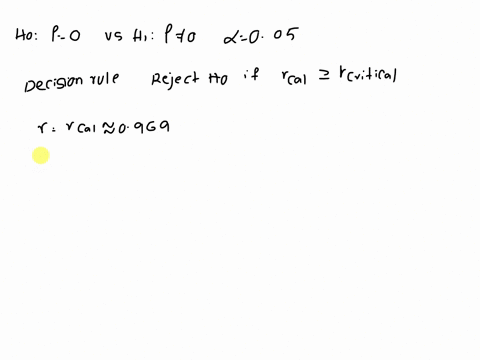 Ho: ρ=0 vs H1: ρ≠0 α=0.05
Decision rule Reject Ho if rcal ≥ rcritical
r = rcal ≈ 0.969